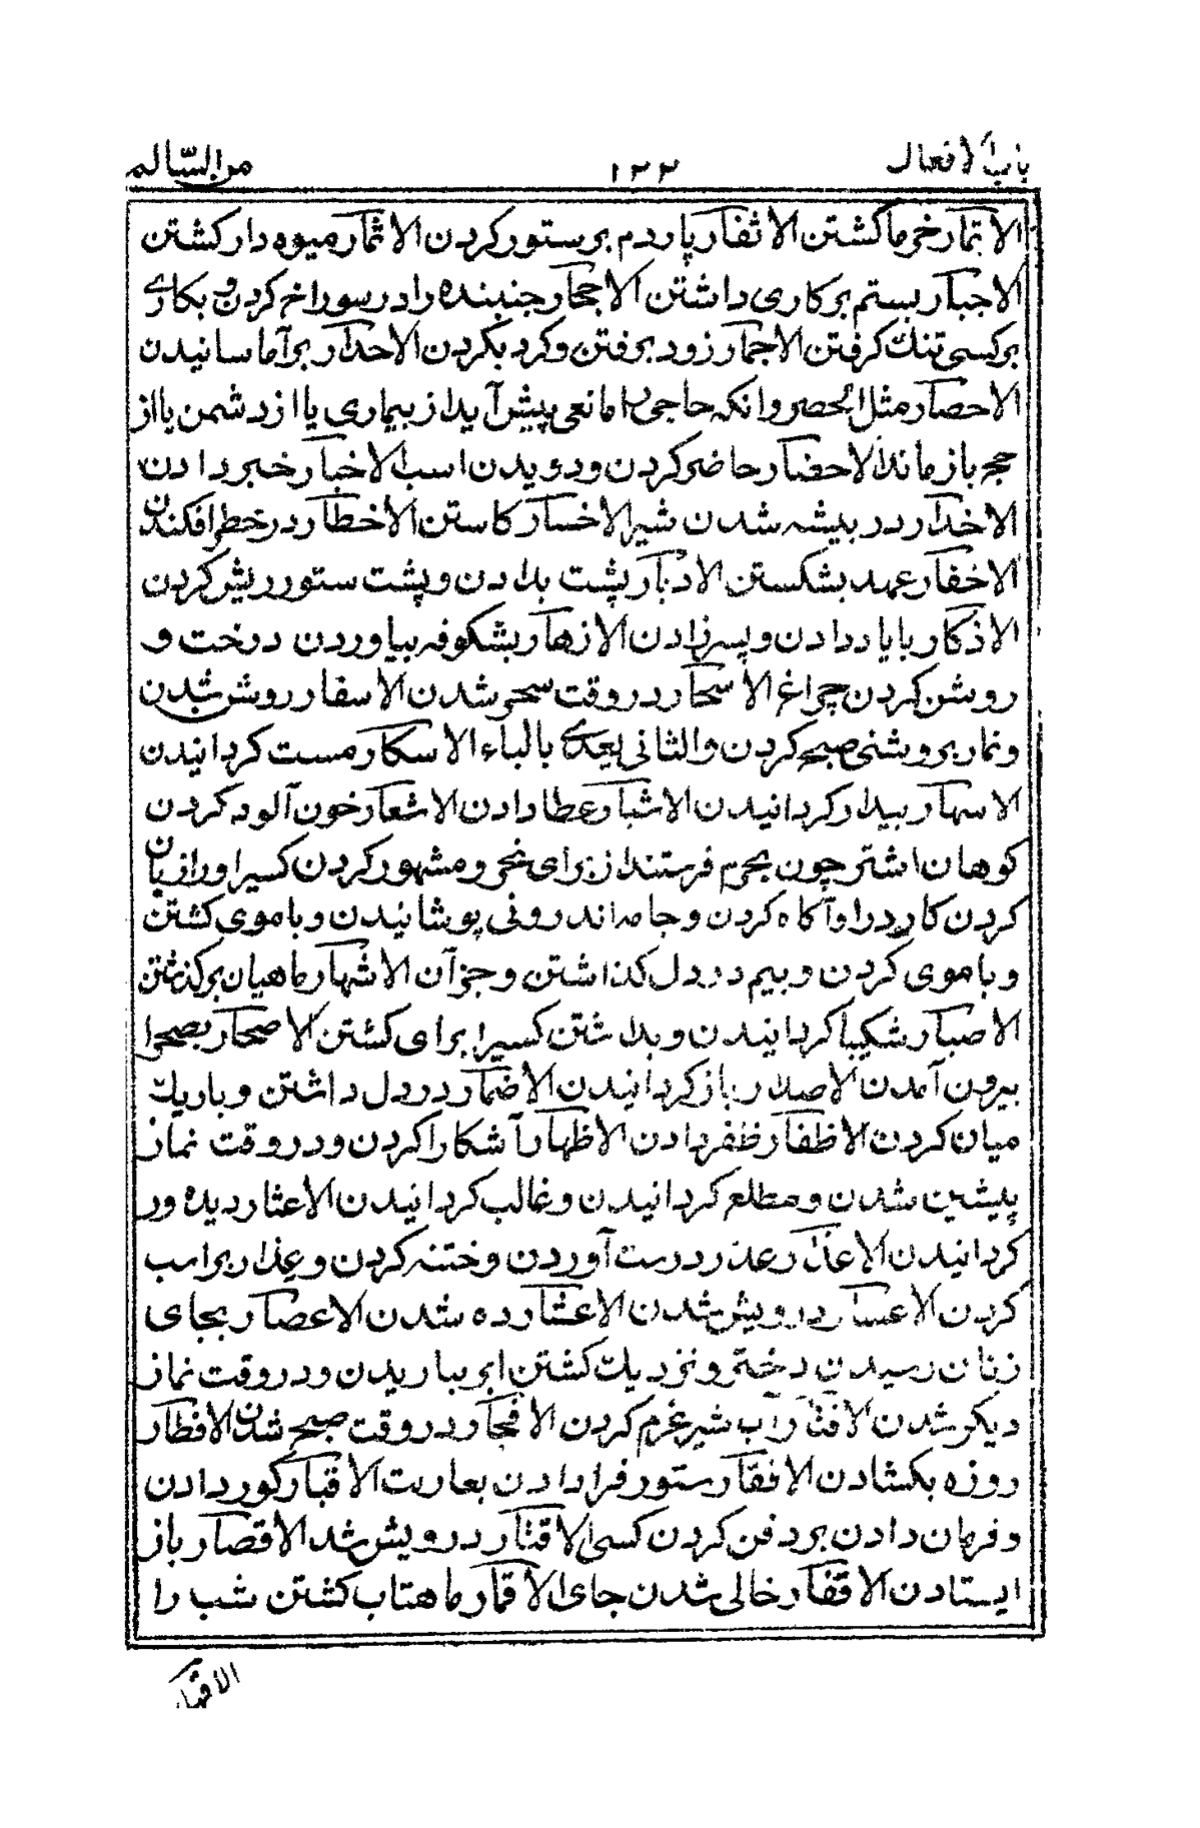 باب الافعال ١٣٢ من السّالم
الاتمار خرما کشتن الاثفار پاردم بر ستور کردن الاثمار میوه دار کشتن
الاجبار بستم بر کاری داشتن الاجحار جنبنده را در سوراخ کردن و بکاری
بر کسی تنك کرفتن الاجمار زود برفتن و کرد بکردن الاحدار بر آماسانیدن
الاحصار مثل الحصر وانکه حاجی را مانعی پیش آید از بیماری یا از دشمن یا از
حج باز ماند الاحضار حاضر کردن و دویدن اسب الاخبار خبر دادن
الاخدار در بیشه شدن شیر الاخسار کاستن الاخطار در خطر افکندن
الاخفار عهد بشکستن الادبار پشت بدادن و پشت ستور ریش کردن
الاذکار بایاد دادن و پسر زادن الازهار بشکوفه بیاوردن درخت و
روشن کردن چراغ الاسحار در وقت سحر شدن الاسفار روشن شدن
و نماز بروشنی صبح کردن والثانی یعدی بالباء الاسکار مست کردانیدن
الاسهار بیدار کردانیدن الاشبار عطا دادن الاشعار خون آلوده کردن
کوهان اشتر چون بحرم فرستند از برای نحر و مشهور کردن کسیرا و رازبان
کردن کارد را و آکاه کردن و جامه اندرونی پوشانیدن و با موی کشتن
و با موی کردن و بیم در دل کذاشتن و جز آن الاشهار ماهیان بر کذشتن
الاصبار شکیبا کردانیدن و بداشتن کسیرا برای کشتن الاصحار بصحرا
بیرون آمدن الاصدار باز کردانیدن الاضمار در دل داشتن و باریك
میان کردن الاظفار ظفر دادن الاظهار آشکارا کردن و در وقت نماز
پیشین شدن و مطلع کردانیدن و غالب کردانیدن الاعثار دیده ور
کردانیدن الاعذار عذر درست آوردن و ختنه کردن و عذار بر اسب
کردن الاعسار درویش شدن الاعشار ده شدن الاعصار بجای
زنان رسیدن دختر و نزدیك کشتن ابر بباریدن و در وقت نماز
دیکر شدن الافتار آب شیر کرم کردن الافجار در وقت صبح شدن الافطار
روزه بکشادن الافقار ستور فرا دادن بعاریت الاقبار کور دادن
و فرمان دادن بر دفن کردن کسی الاقتار درویش شد الاقصار باز
ایستادن الاقفار خالی شدن جای الاقمار ماهتاب کشتن شب را
الاقهار